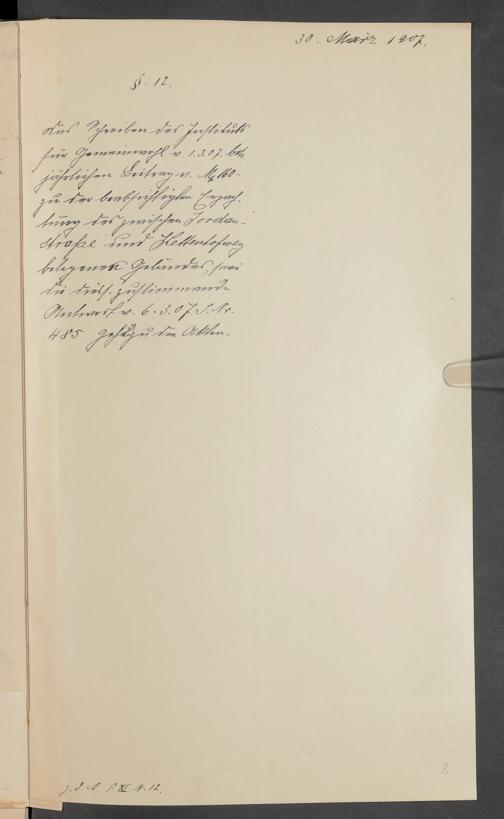 30. März 1907.
§. 12.
Das Schreiben des Instituts
für Gemeinwohl v. 1.3.07. betr.
jährlichen Beitrag v. M 160.-
zu der beabsichtigten Erpach-
tung des zwischen Jordan-
straße und Kettenhofweg
belegenen Geländes, sowie
die diess. zustimmende
Antwort v. 6.3.07. J. Nr.
485. geht zu den Akten.
z. d. A. P XI N. 12.
8